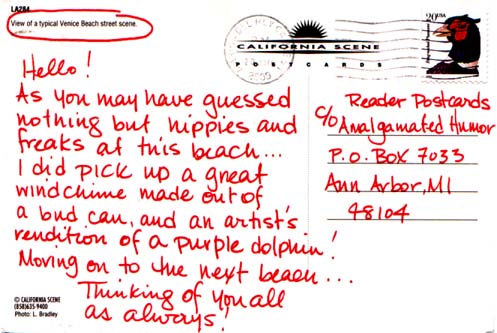 LA284
View of a typical Venice Beach street scene.
Hello!
As you may have guessed
nothing but hippies and
freaks at this beach...
I did PICK up a great
windchime made out of
a bud can, and an artist's
rendition of a purple dolphin!
Moving on to the next beach...
Thinking of you all
as always!
© CALIFORNIA SCENE
(858)635-9400
Photo: L. Bradley
CALIFORNIA SCENE
POSTCARDS
2000
20 USA
Reader Postcards
c/o Amalgamated Humor
P.O. BOX 7033
Ann Arbor, MI
48104